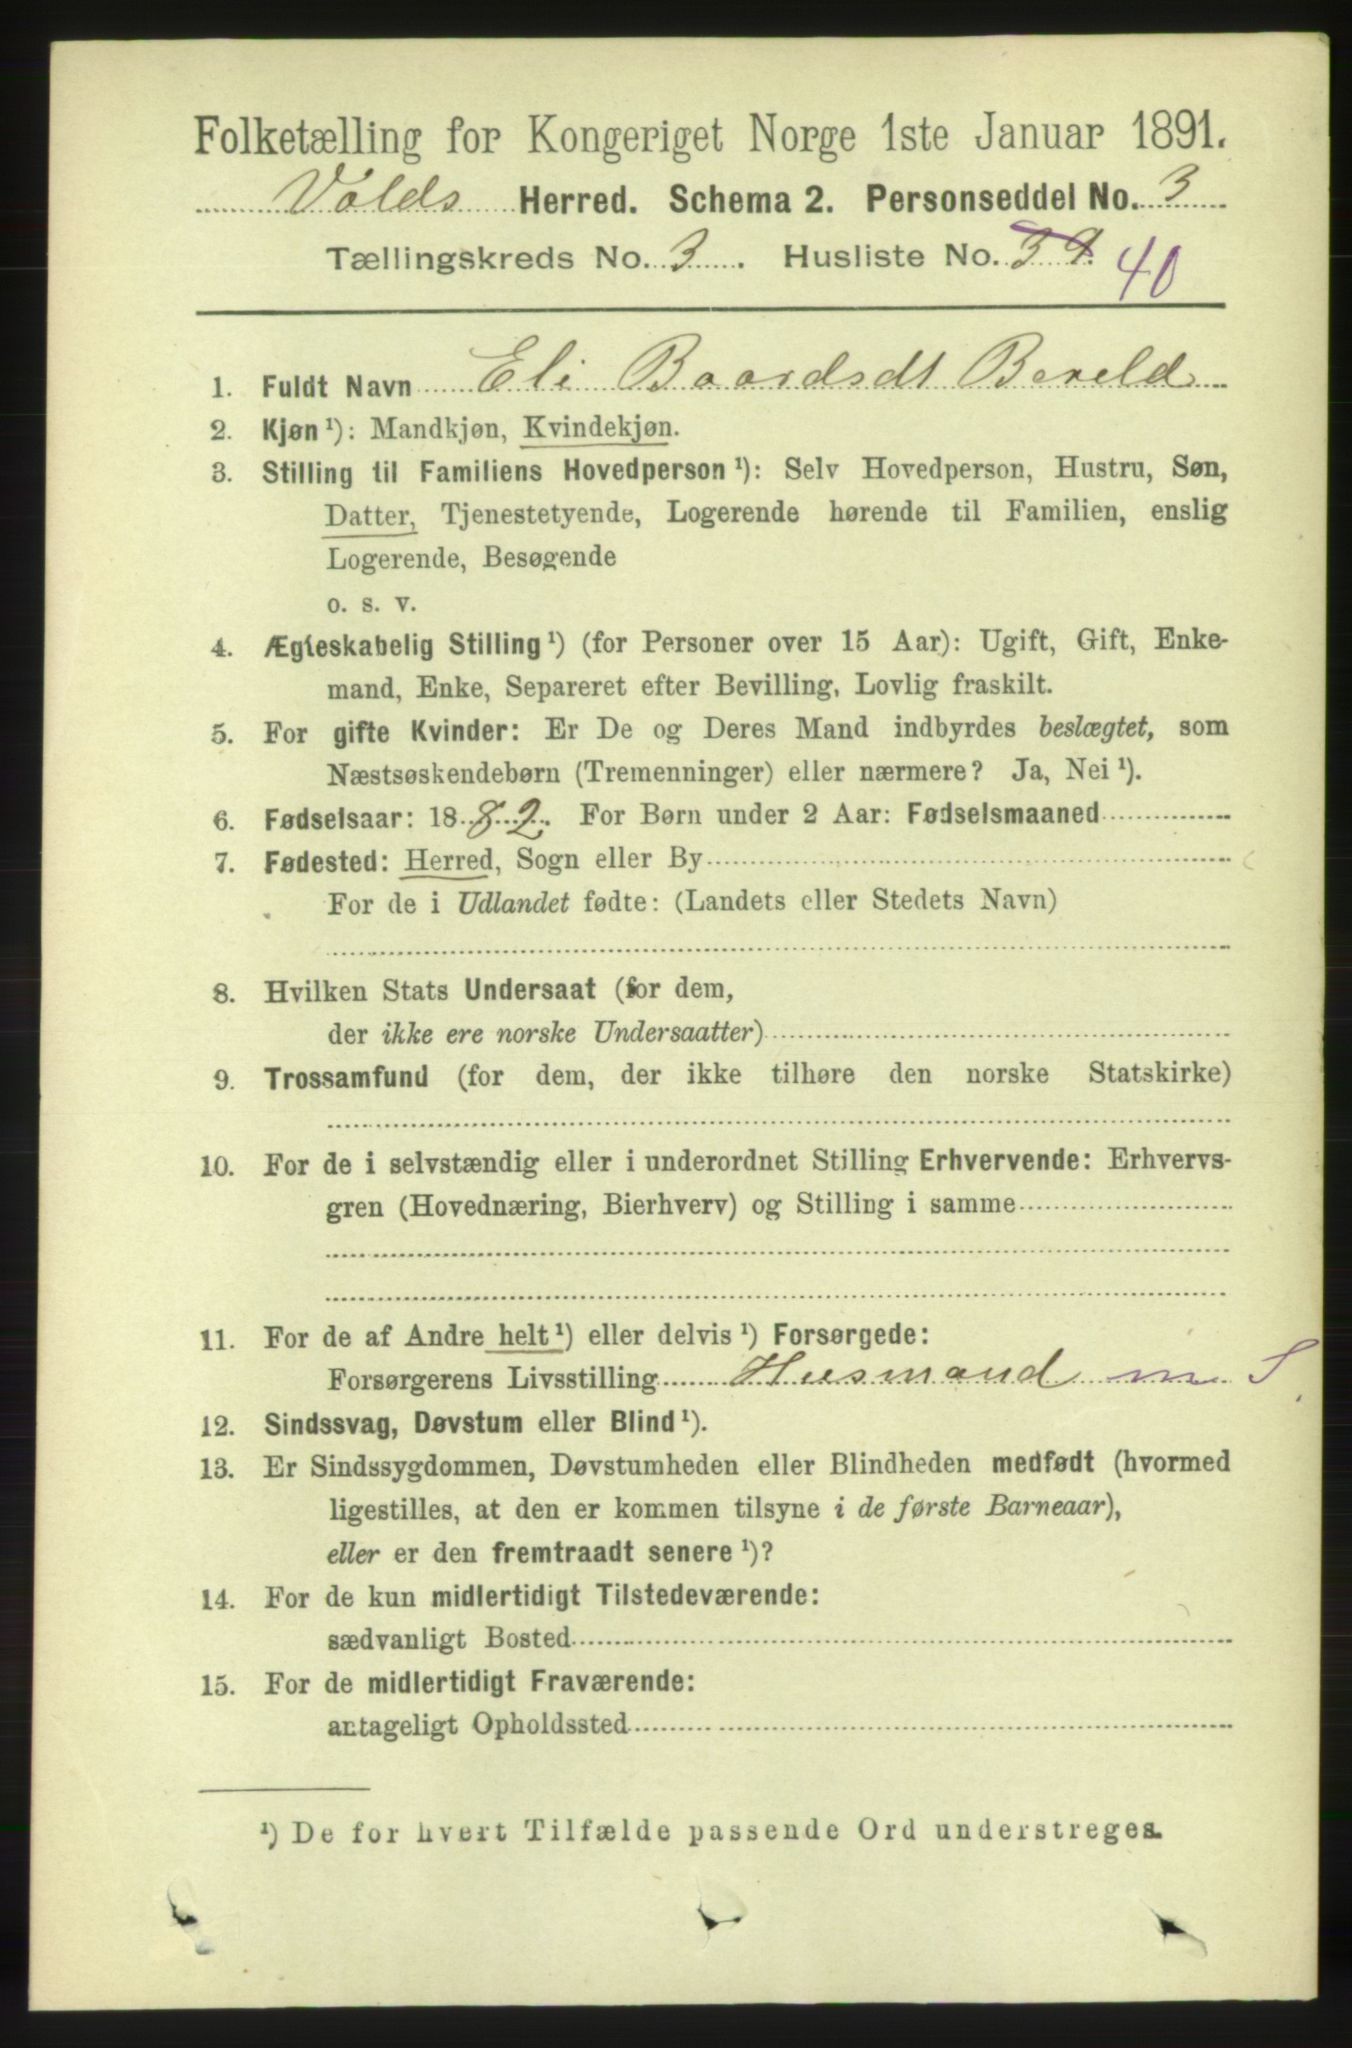 Folketælling for Kongeriget Norge 1ste Januar 1891.
Volds Herred. Schema 2. Personseddel No. 3
Tællingskreds No. 3. Husliste No. 39. 40
1. Fuldt Navn Eli Baardsdt Beveld
2. Kjøn ¹): Mandkjøn, Kvindekjøn.
3. Stilling til Familiens Hovedperson ¹): Selv Hovedperson, Hustru, Søn,
Datter, Tjenestetyende, Logerende hørende til Familien, enslig
Logerende, Besøgende
o. s. v.
4. Ægteskabelig Stilling ¹) (for Personer over 15 Aar): Ugift, Gift, Enke-
mand, Enke, Separeret efter Bevilling, Lovlig fraskilt.
5. For gifte Kvinder: Er De og Deres Mand indbyrdes beslægtet, som
Næstsøskendebørn (Tremenninger) eller nærmere? Ja, Nei ¹).
6. Fødselsaar: 1882. For Børn under 2 Aar: Fødselsmaaned
7. Fødested: Herred, Sogn eller By
For de i Udlandet fødte: (Landets eller Stedets Navn)
8. Hvilken Stats Undersaat (for dem,
der ikke ere norske Undersaatter)
9. Trossamfund (for dem, der ikke tilhøre den norske Statskirke)
10. For de i selvstændig eller i underordnet Stilling Erhvervende: Erhvervs-
gren (Hovednæring, Bierhverv) og Stilling i samme
11. For de af Andre helt ¹) eller delvis ¹) Forsørgede:
Forsørgerens Livsstilling Husmand m. S.
12. Sindssvag, Døvstum eller Blind ¹).
13. Er Sindssygdommen, Døvstumheden eller Blindheden medfødt (hvormed
ligestilles, at den er kommen tilsyne i de første Barneaar),
eller er den fremtraadt senere ¹)?
14. For de kun midlertidigt Tilstedeværende:
sædvanligt Bosted
15. For de midlertidigt Fraværende:
antageligt Opholdssted
¹) De for hvert Tilfælde passende Ord understreges.